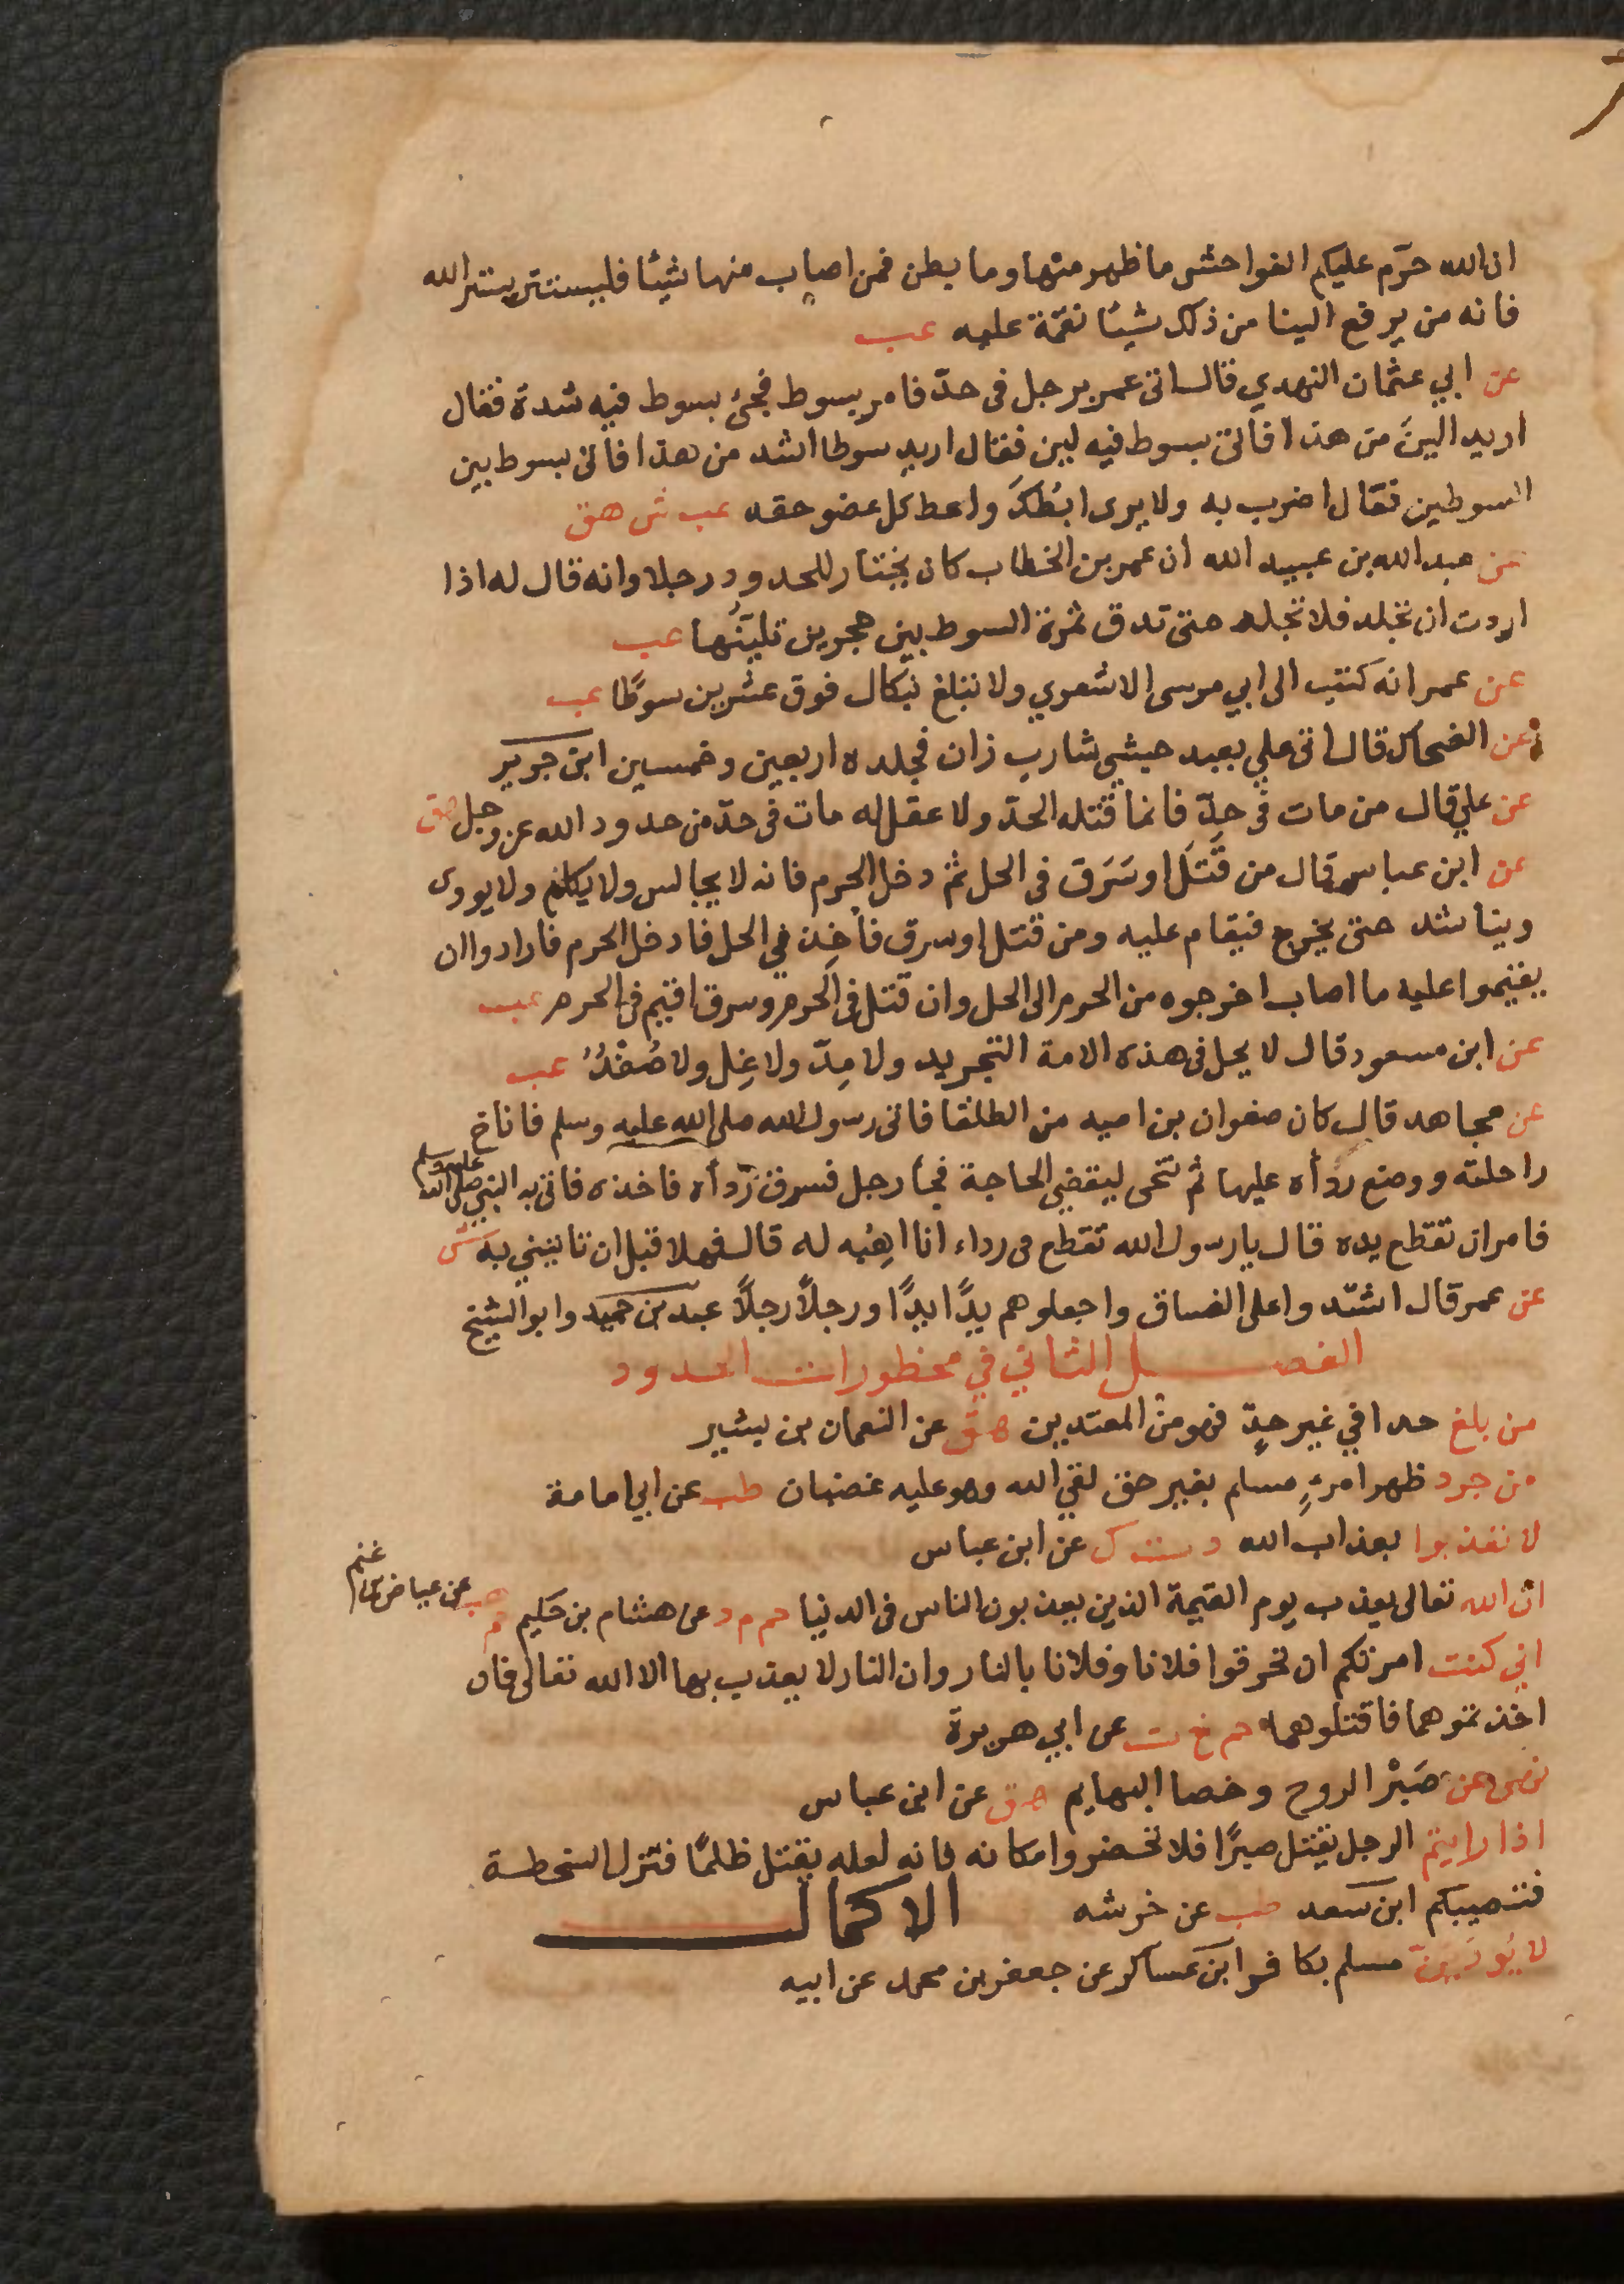 ان الله حرّم عليكم الفواحش ما ظهر منها وما بطن فمن اصاب منها شيئا فليستتر بستر الله
فانه من يرفع الينا من ذلك شيئا نقمة عليه عب
عن ابي عثمان النهدي قال اتى عمر برجل في حدّ فامر بسوط فجئ بسوط فيه شدة فقال
اريد الينَ من هذا فاتى بسوط فيه لين فقال اريد سوطا اشد من هذا فاتى بسوط بين
السوطين فقال اضرب به ولا يرى ابطكَ واعط كل عضو حقه عب ش هق
عن عبد الله بن عبيد الله ان عمر بن الخطاب كان يختار للحدود رجلا وانه قال له اذا
اردت ان تجلد فلا تجلد حتى تدق ثمرة السوط بين حجرين تليّنُها عب
عن عمر انه كتب الى ابي موسى الاشعري ولا تبلغ بنكال فوق عشرين سوطًا عب
عن الضحاك قال اتى علي بعبد حبشي شارب زان فجلده اربعين وخمسين ابن جرير
عن علي قال من مات في حدّ فانما قتله الحدّ ولا عقل له مات في حدّ من حدود الله عز وجل هق
عن ابن عباس قال من قَتَلَ او سَرَق في الحل ثم دخل الحرم فانه لا يجالس ولا يكلم ولا يووى
ويناشد حتى يخرج فيقام عليه ومن قتل او سرق فأخِذ في الحل فادخل الحرم فارادوا ان
يقيموا عليه ما اصاب اخرجوه من الحرم الى الحل وان قتل في الحرم وسرق اقيم في الحرم عب
عن ابن مسعود قال لا يحل في هذه الامة التجريد ولا مِدّ ولا غِل ولا صُفْدُ عب
عن مجاهد قال كان صفوان بن اميه من الطلقا فاتى رسول الله صلى الله عليه وسلم فاناخ
راحلته ووضع ردأه عليها ثم تنحى ليقضي الحاجة فجأ رجل فسرق ردأه فاخذه فاتى به النبي صلى الله عليه وسلم
فامر ان تقطع يده قال يا رسول الله تقطع في رداء انا اهبُه له قال فهلا قبل ان تاتيني به ش
عن عمر قال اشتدوا على الفساق واجعلوهم يدًا يدًا ورجلاً رجلاً عبد بن حميد وابو الشيخ
الفصل الثاني في محظورات الحدود
من بلغ حدا في غير حدٍّ فهو من المعتدين هق عن النعمان بن بشير
من جرد ظهر امرءٍ مسلم بغير حق لقي الله وهو عليه غضبان طب عن ابي امامة
لا تعذبوا بعذاب الله د ت ك عن ابن عباس
ان الله تعالى يعذب يوم القيمة الذين يعذبون الناس في الدنيا حم م د عن هشام بن حكيم حم هب عن عياض بن غنم
اني كنت امرتكم ان تحرقوا فلانا وفلانا بالنار وان النار لا يعذب بها الا الله تعالى فان
اخذتموهما فاقتلوهما حم خ ت عن ابي هريرة
نهى عن صَبْر الروح وخصا البهايم هق عن ابن عباس
اذا رايتم الرجل يقتل صبرًا فلا تحضروا مكانه فانه لعله يقتل ظلمًا فتنزل السخطة
فتصيبكم ابن سعد طب عن خرشه الاكمال
لا مسلم بكافر ابن عساكر عن جعفر بن محمد عن ابيه